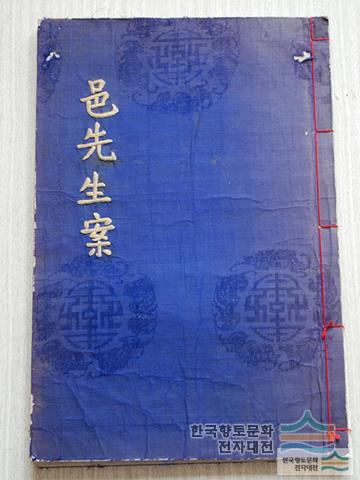 邑先生案
한국향토문화
전자대전
한국향토문화
전자대전